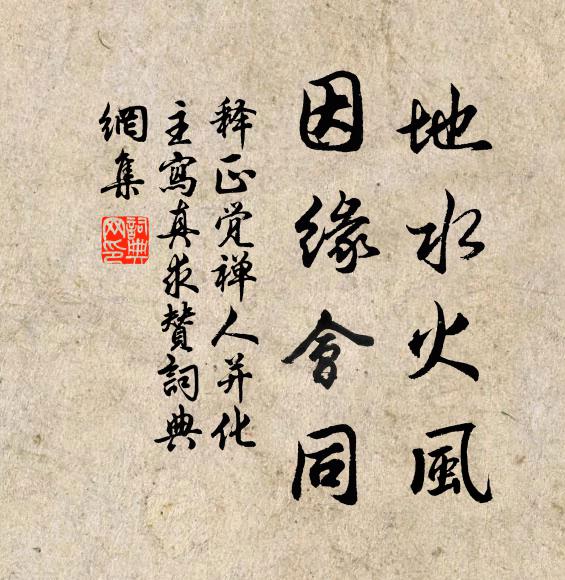 地水火風
因缘會同
释正觉禅人并化
主寫真求贊詞典
網集
詞典
网印